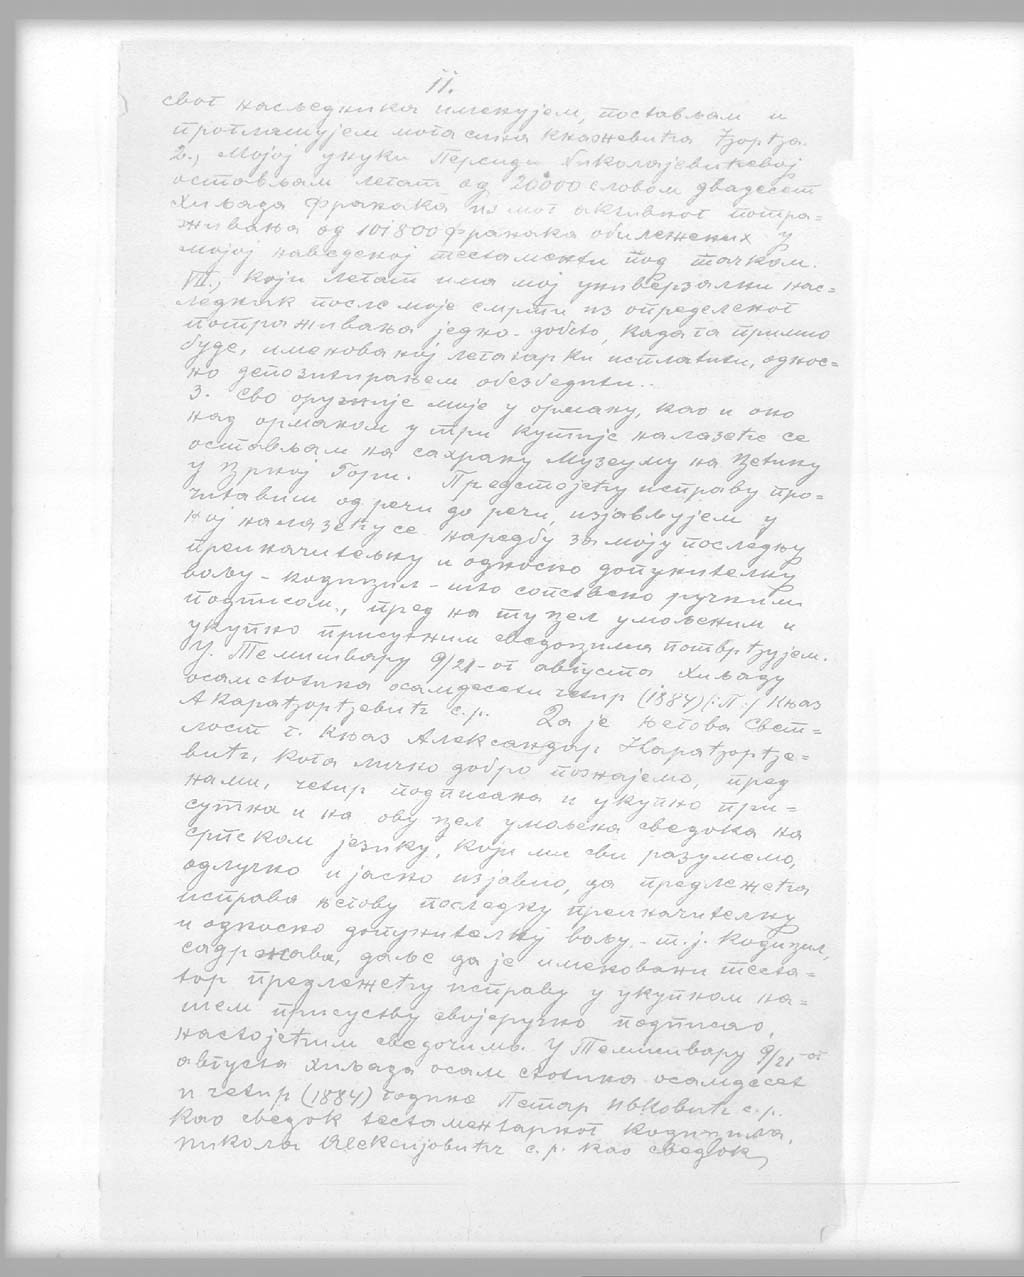 11.
свог насљедника именујем, постављам и
проглашујем мога сина књажевића Ђорђа.
2., Мојој унуки Персиди Николајевићевој
остављам легат од 20000 словом двадесет
хиљада франака из мог активног потра=
живања од 101800 франака обележених у
мојој наведеној тестаменти под тачком.
VII., који легат има мој универзални нас=
ледник после моје смрти из определеног
потраживања једно-добно, када га примио
буде, именованој легатарки исплатити, однос=
но депозитирањем обезбедити..
3. Сво оружије моје у орману, као и оно
над орманом у три кутије налазеће се
остављам на сахрану Музеуму на Цетињу
у Црној Гори. Предстојећу исправу про=
читавши од речи до речи, изјављујем у
њој налазећу се наредбу за моју последњу
преиначитељну и односно допунителну
вољу - кодицил - што сопствено ручним
подписом, пред на ту цел умољеним и
укупно присутним сведоцима потврђујем.
У Темишвару 9/21-ог августа хиљаду
осамстотина осамдесети четир (1884) (:П.:) Књаз
А Карађорђевић с.р. Да је његова Свет=
лост г. Књаз Александар Карађорђе=
вић, кога лично добро познајемо, пред
нами, четир подписана и укупно при=
сутна и на ову цел умољена сведока на
српском језику, који ми сви разумемо,
одлучно и јасно изјавио, да предлежећа
исправа његову последњу преиначителну
и односно допунителнј вољу - т.ј. кодицил,
садржава, даље да је именовани теста=
тор предлежећу исправу у укупном на=
шем присуству својеручно подписао,
настојећим сведочимо. У Темишвару 9/21-ог
августа хиљада осам стотина осамдесет
и четир (1884) године Петар Ивковић с.р.
као сведок тестаментарног кодицила,
Никола Алексијовић с.р. као сведок,